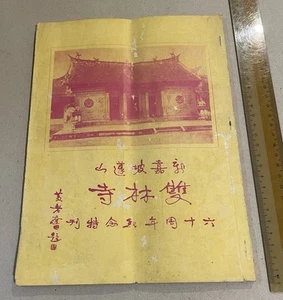 新嘉坡蓮山
雙林寺
六十周年紀念特刊